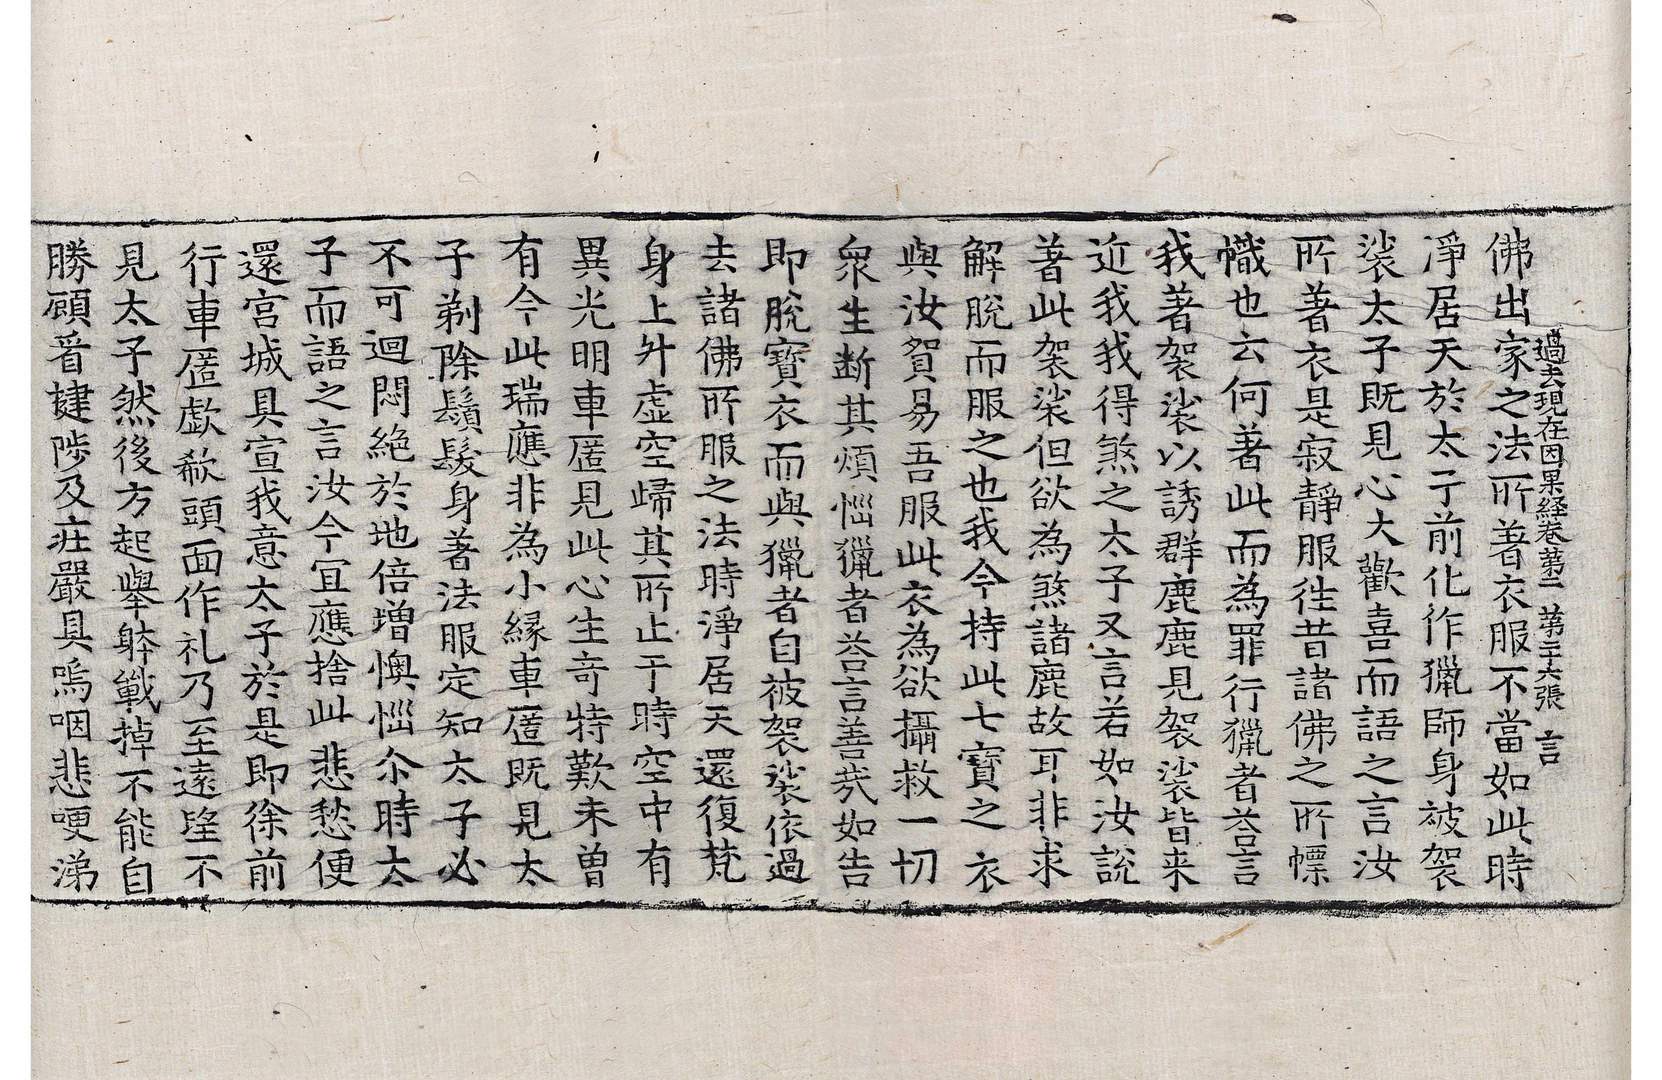 過去現在因果経卷苐二　苐三十六張　言
佛出家之法所著衣服不當如此時
淨居天於太子前化作獵師身被袈
裟太子既見心大歡喜而語之言汝
所著衣是寂靜服徃昔諸佛之所幖
幟也云何著此而為罪行獵者荅言
我著袈裟以誘群鹿鹿見袈裟皆来
近我我得煞之太子又言若如汝説
著此袈裟但欲為煞諸鹿故耳非求
解脫而服之也我今持此七寶之衣
與汝貿易吾服此衣為欲攝救一切
衆生断其煩惱獵者荅言善哉如告
即脫寶衣而與獵者自被袈裟依過
去諸佛所服之法時淨居天還復梵
身上升虛空歸其所止于時空中有
異光明車匿見此心生奇特歎未曽
有今此瑞應非為小縁車匿既見太
子剃除鬚髮身著法服定知太子必
不可迴悶絕於地倍增懊惱尒時太
子而語之言汝今宜應捨此悲愁便
還宮城具宣我意太子於是即徐前
行車匿歔欷頭面作礼乃至遠望不
見太子然後方起舉躰戰掉不能自
勝顧看揵陟及莊嚴具嗚咽悲哽涕